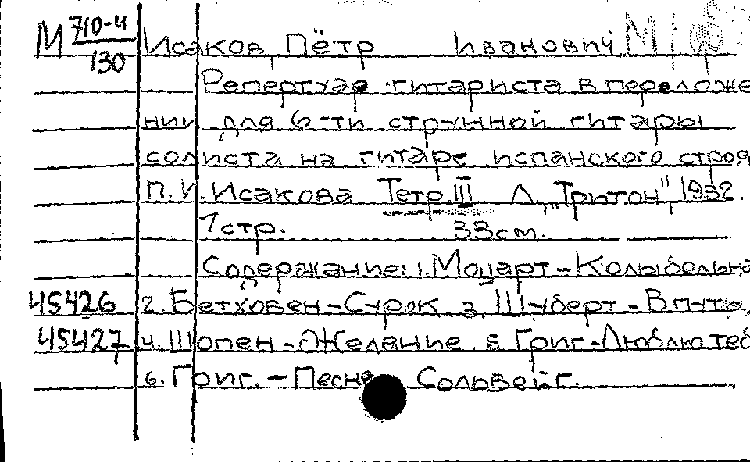 М 710-4 Исаков, Пётр Иванович
130
Репертуар гитариста в переложе
нии для 6-ти струнной гитары
солиста на гитаре испанского строя
П. И. Исакова Тетр. III Л. „Тритон", 1932.
7 стр. 33 см.
Содержание: 1. Моцарт - Колыбельна
45426 2. Бетховен - Сурок 3. Шуберт - В путь,
45427 4. Шопен - Желание 5. Григ - Люблю теб
6. Григ. - Песня Сольвейг.